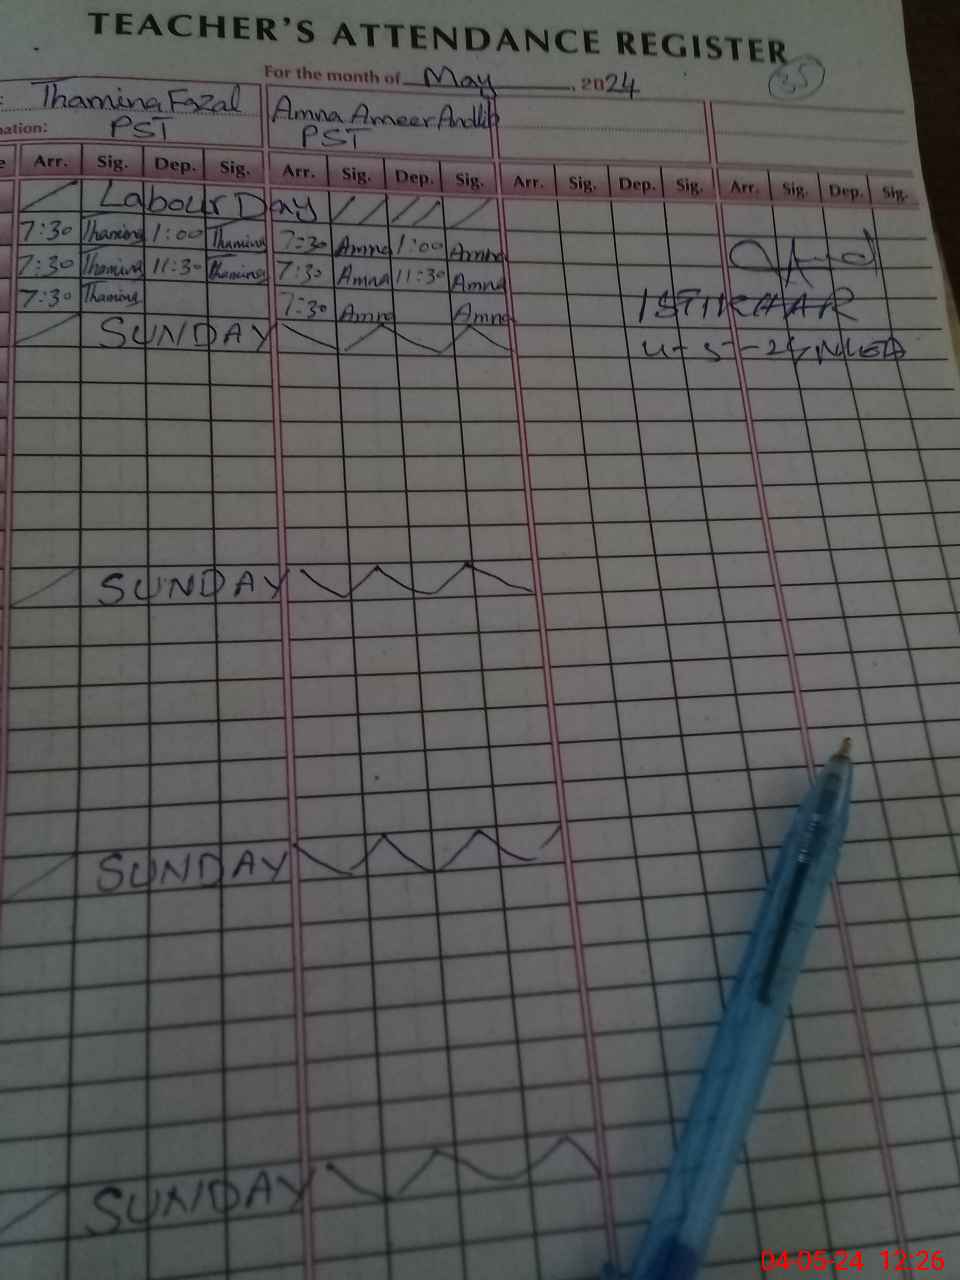 TEACHER'S ATTENDANCE REGISTER
For the month of May, 2024
35
: Thamina Fazal Amna Ameer Andlib
nation: PST PST
e Arr. Sig. Dep. Sig. Arr. Sig. Dep. Sig. Arr. Sig. Dep. Sig. Arr. Sig. Dep. Sig.
Labour Day
7:30 Thamina 1:00 Thamina 7:30 Amna 1:00 Amna
7:30 Thamina 11:30 Thamina 7:30 Amna 11:30 Amna
7:30 Thamina 7:30 Amna Amna
ISTIKHAR
SUNDAY
4-5-24
SUNDAY
SUNDAY
SUNDAY
04-05-24 12:26